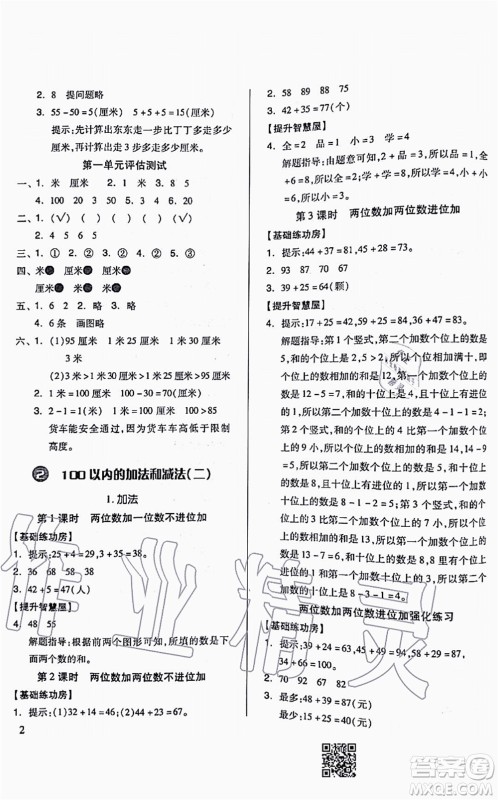 2. 8 提问题略
3. 55-50=5(厘米) 5+5+5=15(厘米)
提示:先计算出东东走比丁丁多走多少
厘米,再计算出东东一共多走多少厘米。
第一单元评估测试
一、1. 米 厘米 2. 1 米 3. 8 5
4. 100 20 3 4 50
二、1. (√) ( ) ( ) (√)
2. 4 5 6 5
三、1. ① 2. ② 3. ① 4. ② 5. ②
四、米 厘米 厘米 米
厘米 米 米 厘米
五、1. 略 2. 略 3. 略
4. 6 条 画图略
六、1. (1)95 厘米 1 米 25 厘米 1 米 30 厘米
3 米
(2)3 米>1 米 30 厘米>1 米 25 厘米
2. 1 米=100 厘米 100-50=50(厘米)
3. 2-1=1(米) 1 米=100 厘米 100>85
货车能安全通过,因为货车车高低于限制
高度。
2 100 以内的加法和减法(二)
1. 加法
第 1 课时 两位数加一位数不进位加
【基础练功房】
1. 提示:25+4=29,3+35=38。
2. 36 68 58 38
3. 42+5=47(人)
【提升智慧屋】
4. 48 55
解题指导:根据前两个图形可知,下面的数是上
面两个数的和。
第 2 课时 两位数加两位数不进位加
【基础练功房】
1. 提示:(1)32+14=46;(2)32+21=53。
2
2. 58 89 88 75
3. 42+35=77(个)
【提升智慧屋】
4. 全=2 品=1 小=3 学=6
解题指导:由题意可知,2+品=3,品=1;全
+6=8,全=2;学+学=12,学=6;小+6=9,
小=3。
第 3 课时 两位数加两位数进位加
【基础练功房】
1. 提示:44+37=81,45+28=73。
2. 93 87 70 32
3. 39+25=64(颗)
【提升智慧屋】
4. 提示:17+25=42,59+25=84,46+48=94。
解题指导:第 1 个竖式,第 2 个加数个位上的数
是 5,和的个位上是 2,5>2,所以个位相加满十,即
个位上的数相加的和是 12,第一个加数个位上
的数是 7,第二个加数十位上的数是 4-1-1=2;
第 2 个竖式,第 1 个加数个位上的数是 9,和的个
位上的数是 4,9>4,所以个位相加满十,即个位上
的数相加的和是 14,第 2 个加数个位上的数是
14-9=5,十位上的数是 8-5-1=2;第 3 个竖
式,第 2 个加数个位上的数是 8,和的个位上的数
是 4,8>4,所以个位相加满十,即个位上的数相
加的和是 14,第 1 个加数个位上的数是 14-8=
6,和的十位上的数是 8,8 里面有 8 个十,所以第
1 个加数十位上的数是 8-3-1=4。
两位数加两位数进位加强化练习
【基础练功房】
1. 提示:23+59=82,14+17=31,38+25=63,
34+46=80。
2. 70 92 67 82
3. 最多:48+39=87(元)
最少:15+25=40(元)
作业精灵
答案圈
MXQE.COM